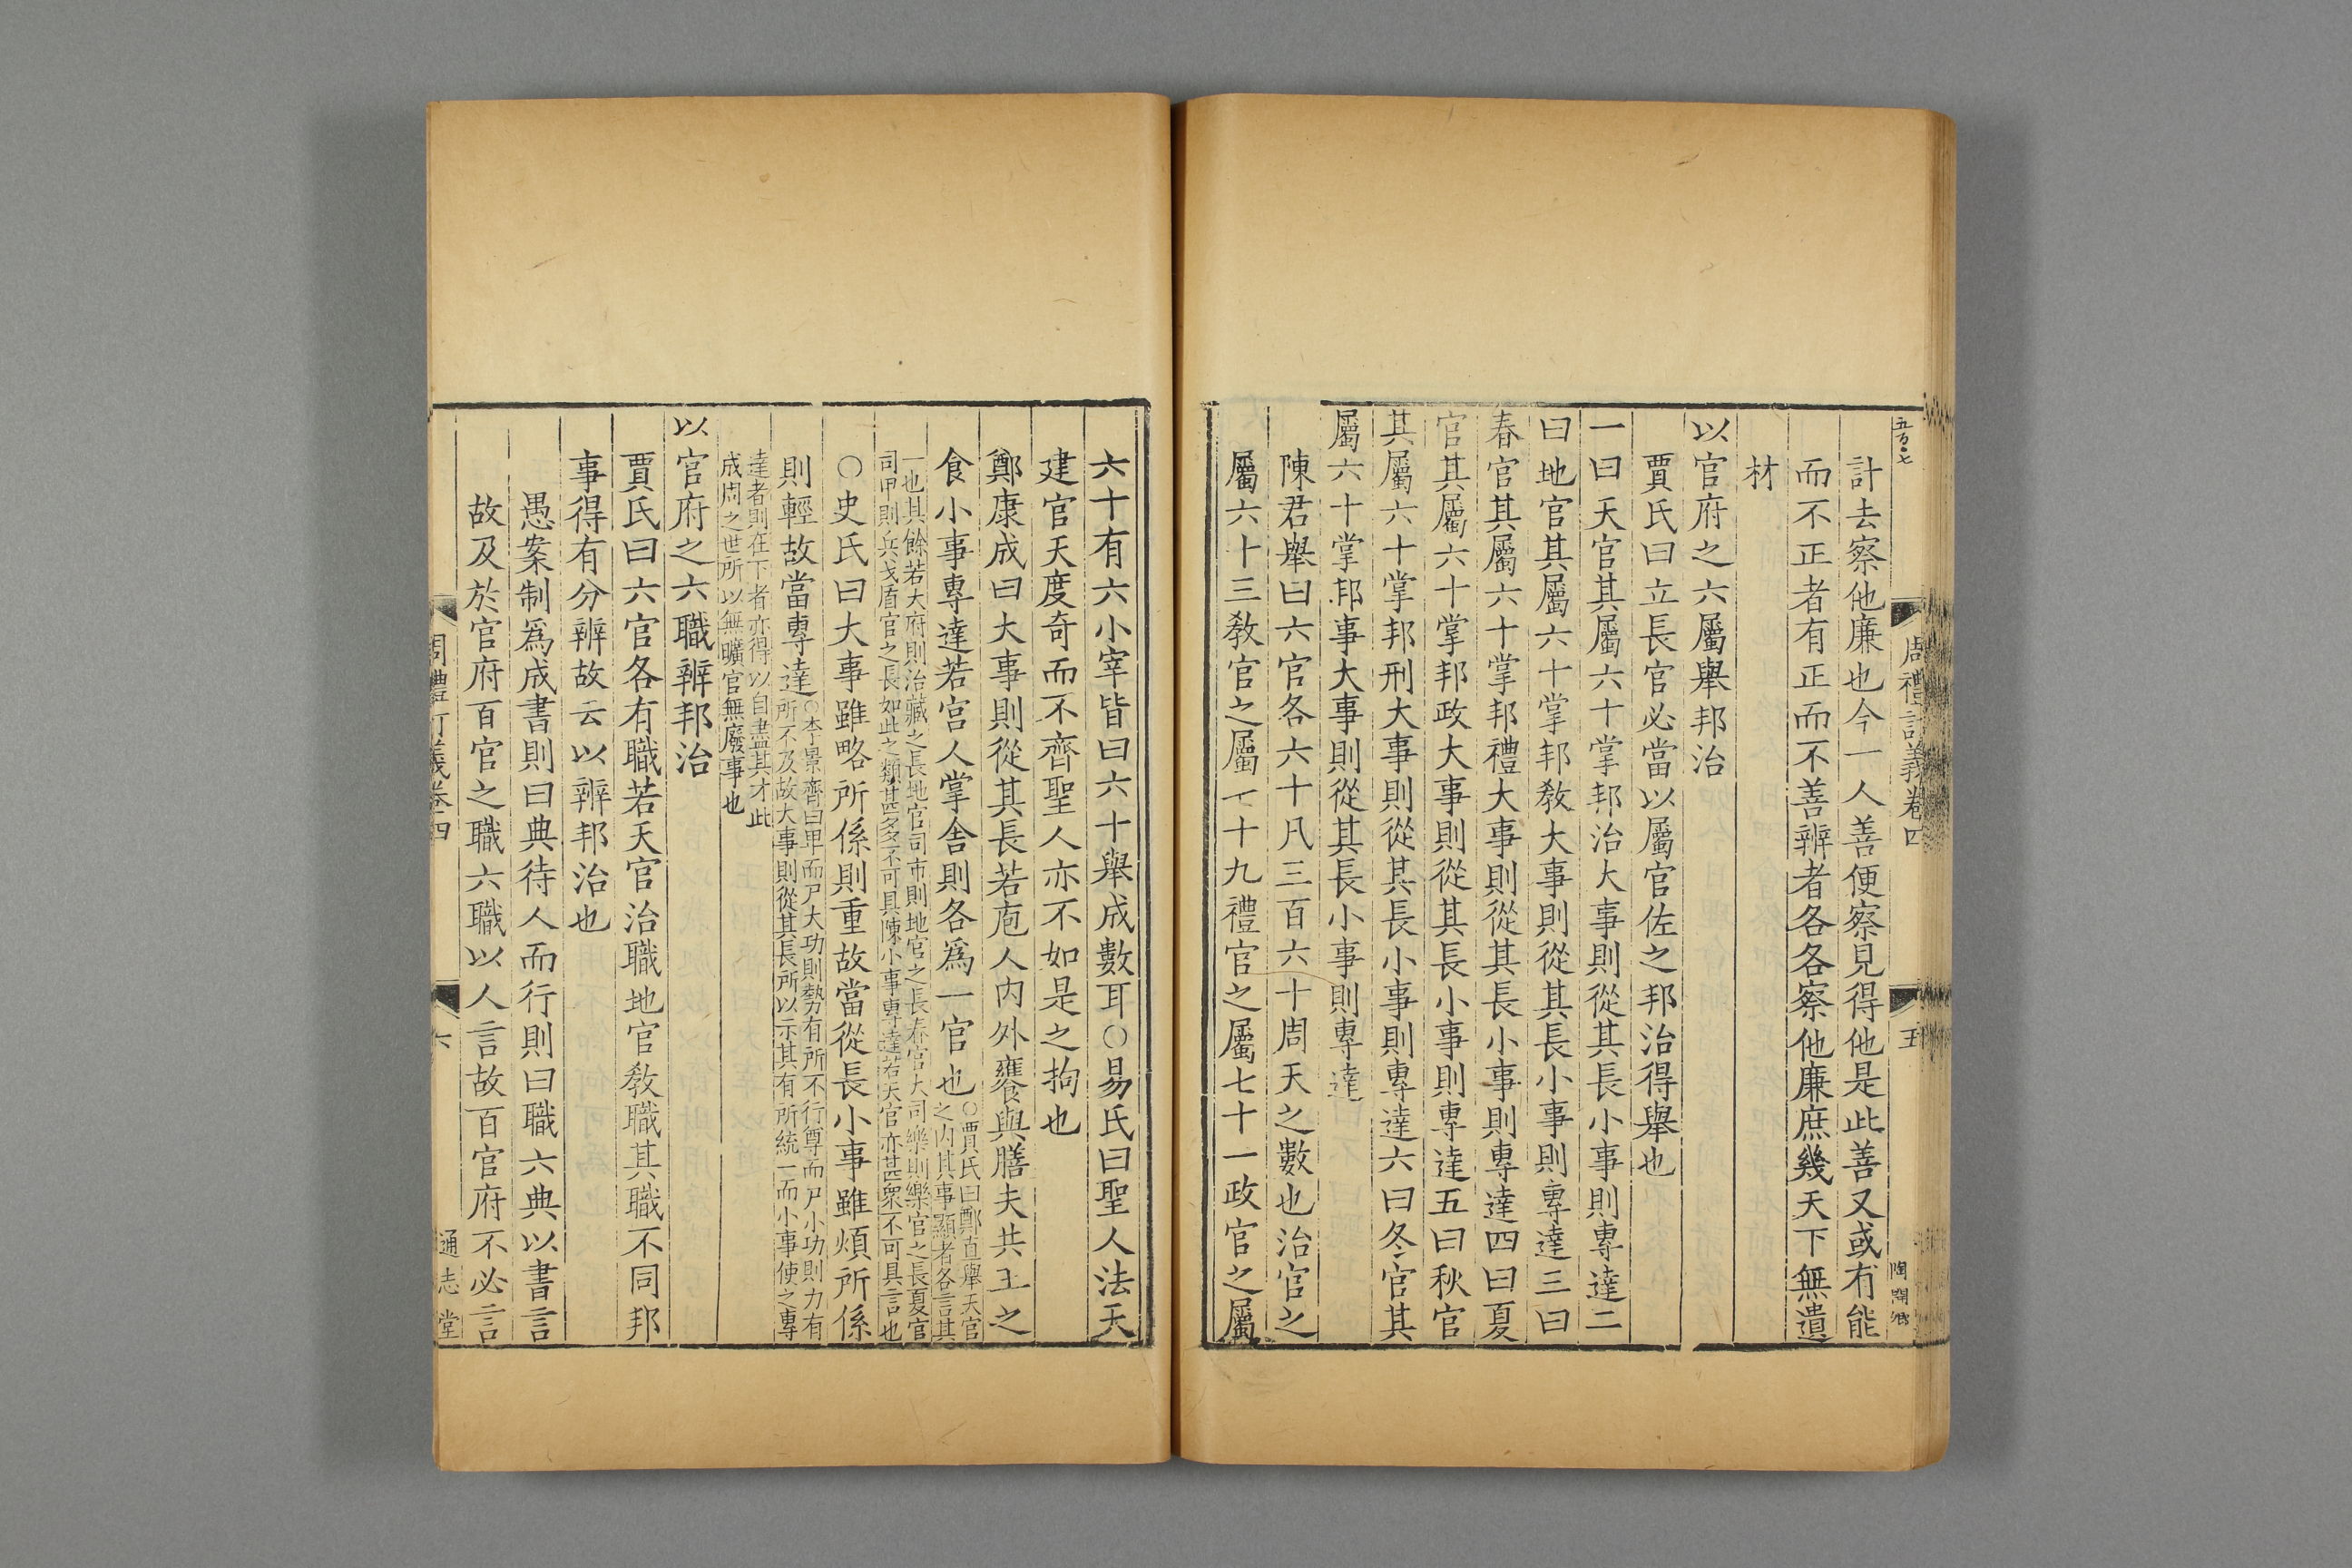 五百七
周禮訂義卷四
五
計去察他廉也今一人善便察見得他是此善又或有能
而不正者有正而不善辨者各各察他廉庶幾天下無遺
材
以官府之六屬舉邦治
賈氏曰立長官必當以屬官佐之邦治得舉也
一曰天官其屬六十掌邦治大事則從其長小事則專達二
曰地官其屬六十掌邦敎大事則從其長小事則專達三曰
春官其屬六十掌邦禮大事則從其長小事則專達四曰夏
官其屬六十掌邦政大事則從其長小事則專達五曰秋官
其屬六十掌邦刑大事則從其長小事則專達六曰冬官其
屬六十掌邦事大事則從其長小事則專達
陳君舉曰六官各六十凡三百六十周天之數也治官之
屬六十三敎官之屬七十九禮官之屬七十一政官之屬
六十有六小宰皆曰六十舉成數耳○易氏曰聖人法天
建官天度奇而不齊聖人亦不如是之拘也
鄭康成曰大事則從其長若庖人內外饔與膳夫共王之
食小事專達若宮人掌舍則各爲一官也
○賈氏曰鄭直舉天官
之內其事顯者各言其
一也其餘若大府則治藏之長地官司市則地官之長春官大司樂則樂官之長夏官
司甲則兵戈盾官之長如此之類甚多不可具陳小事專達若天官亦甚衆不可具言也
○史氏曰大事雖略所係則重故當從長小事雖煩所係
則輕故當專達
○李景齊曰卑而尸大功則勢有所不行尊而尸小功則力有
所不及故大事則從其長所以示其有所統一而小事使之專
達者則在下者亦得以自盡其才此
成周之世所以無曠官無廢事也
以官府之六職辨邦治
賈氏曰六官各有職若天官治職地官敎職其職不同邦
事得有分辨故云以辨邦治也
愚案制爲成書則曰典待人而行則曰職六典以書言
故及於官府百官之職六職以人言故百官府不必言
周禮訂義卷四
六
通志堂